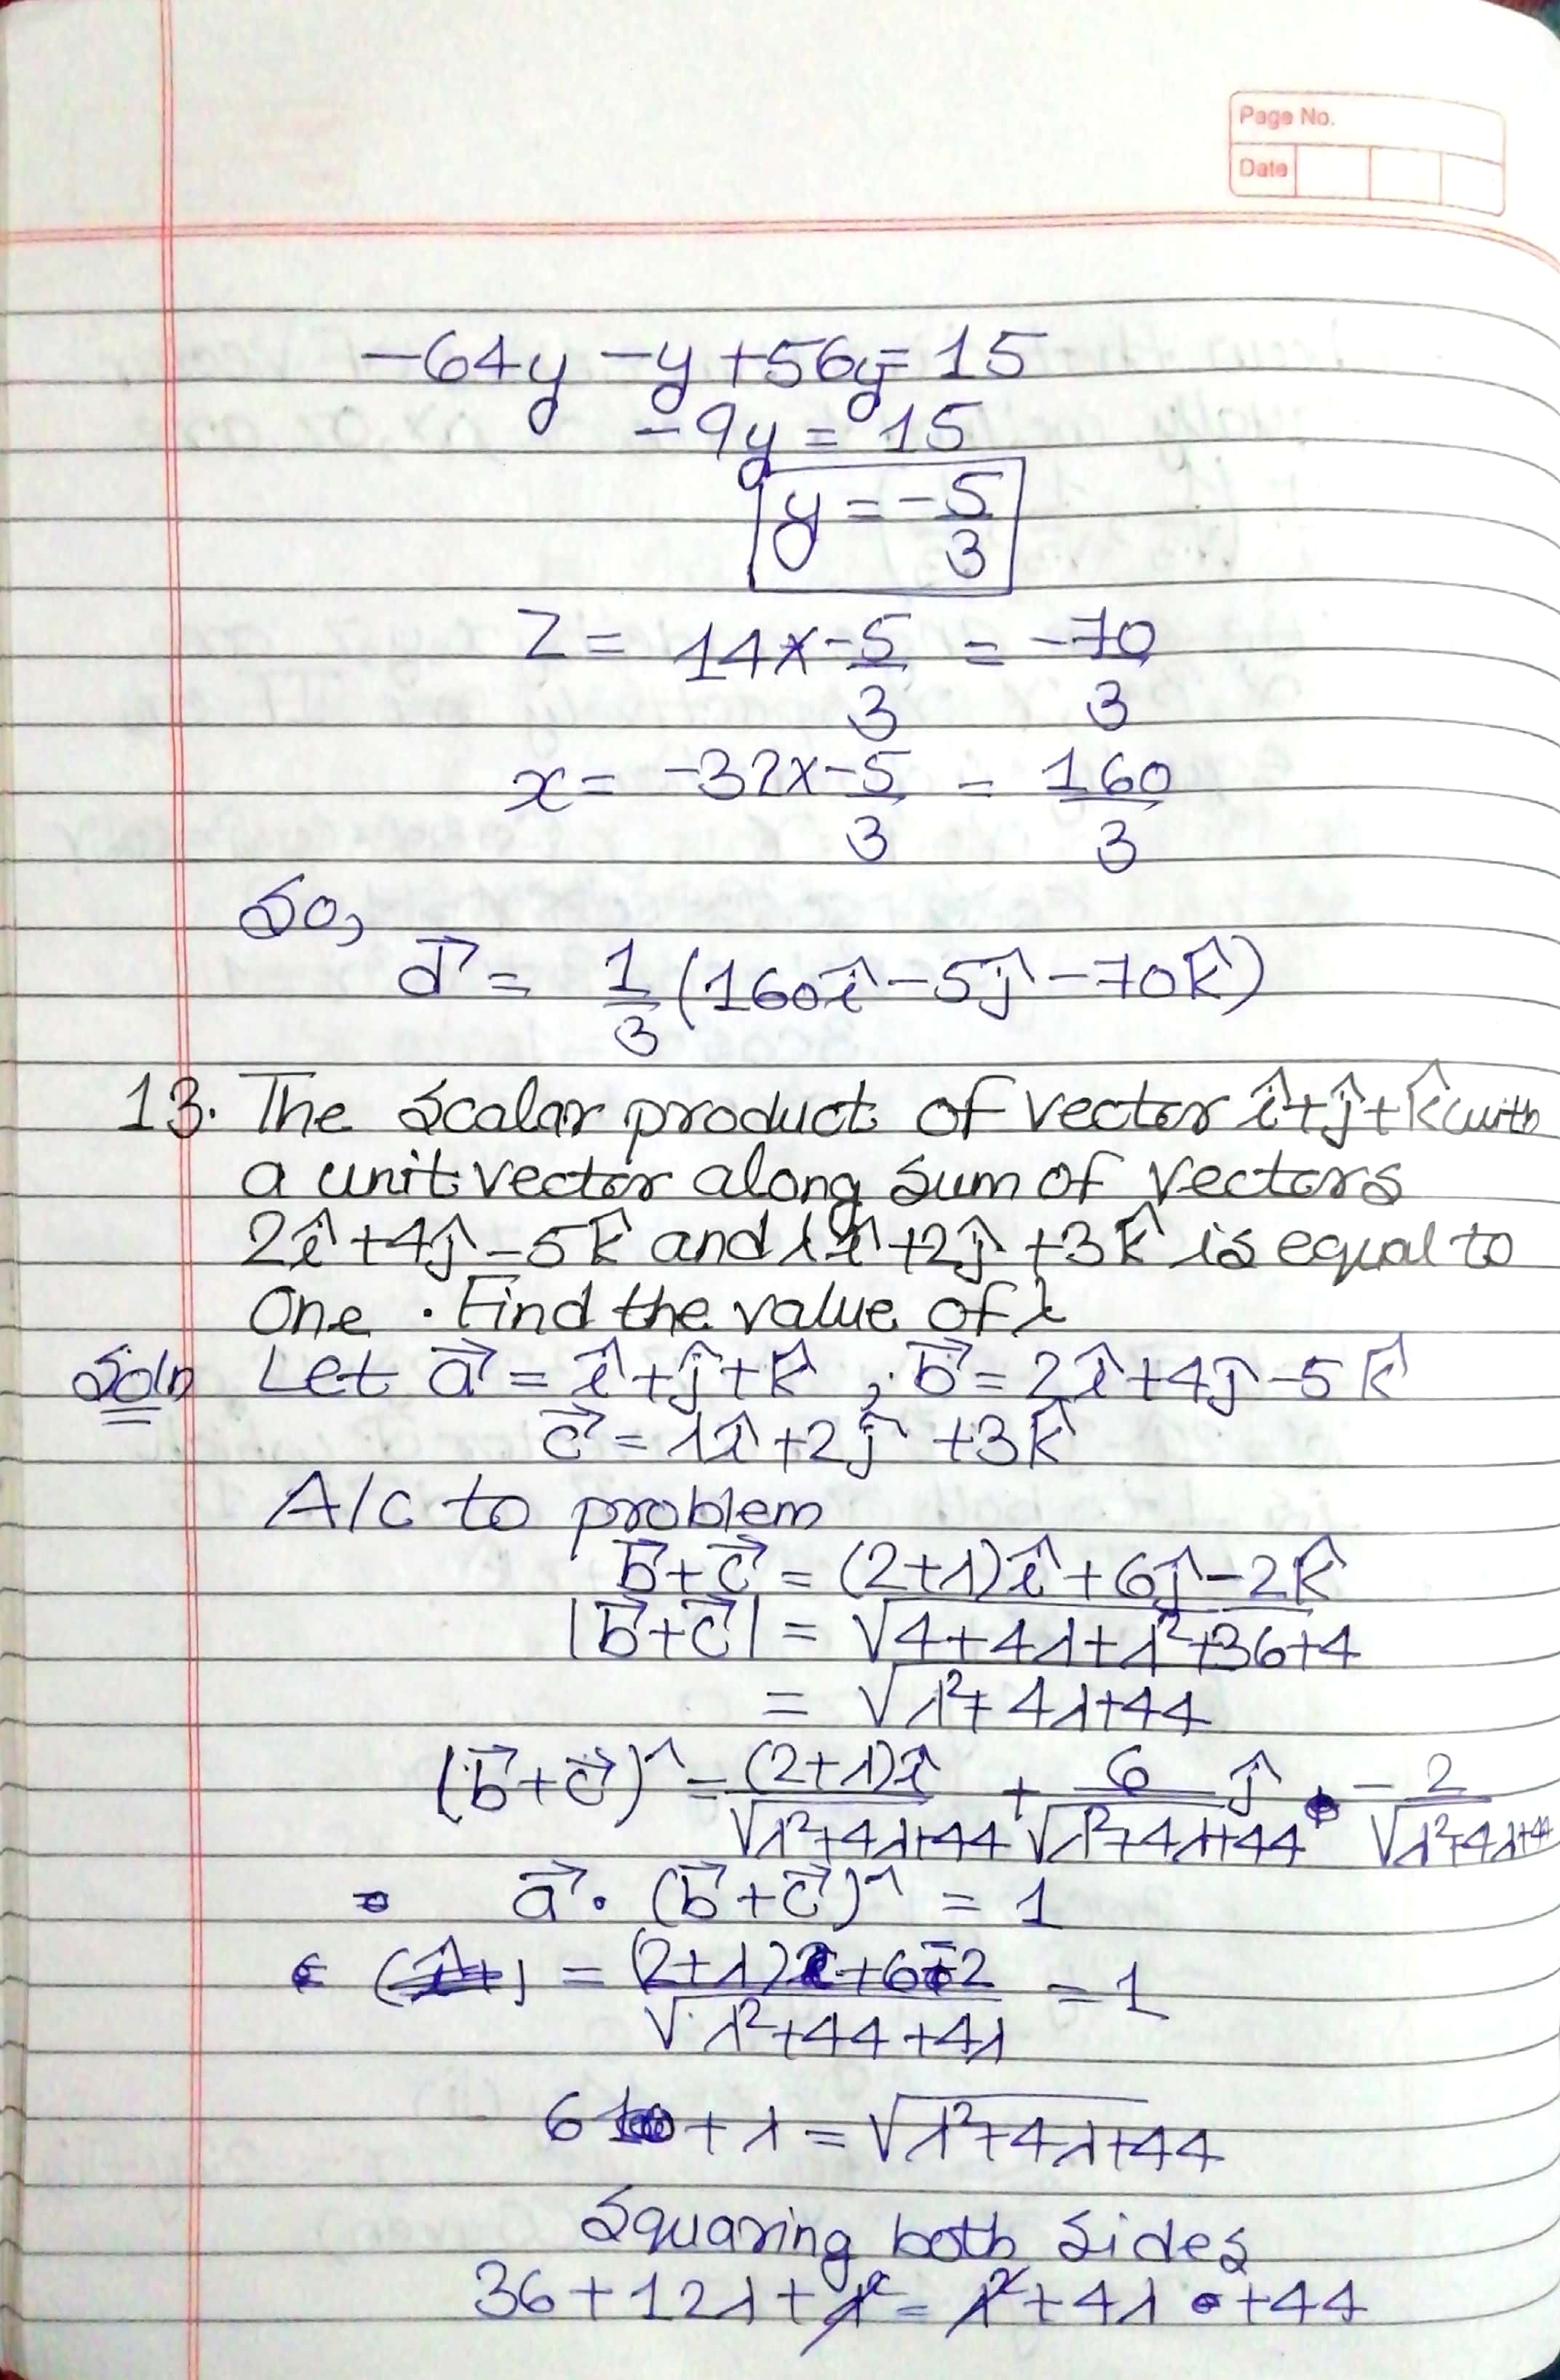 Page No.
Date
-64y - y + 56y = 15
-9y = 15
y = -5/3
Z = 14x-5/3 = -70/3
x = -32x-5/3 = 160/3
So,
d⃗ = 1/3 (160î - 5ĵ - 70k̂)
13. The scalar product of vector î+ĵ+k̂ with
a unit vector along sum of vectors
2î+4ĵ-5k̂ and λî+2ĵ+3k̂ is equal to
One. Find the value of λ
Soln Let a⃗ = î+ĵ+k̂, b⃗ = 2î+4ĵ-5k̂
c⃗ = λî+2ĵ+3k̂
A/c to problem
b⃗+c⃗ = (2+λ)î+6ĵ-2k̂
|b⃗+c⃗| = √4+4λ+λ²+36+4
= √λ²+4λ+44
(b⃗+c⃗)^ = (2+λ)î/√λ²+4λ+44 + 6/√λ²+4λ+44 ĵ - 2/√λ²+4λ+44
a⃗. (b⃗+c⃗)^ = 1
= (2+λ)+6-2/√λ²+44+4λ = 1
6+λ = √λ²+4λ+44
Squaring both sides
36+12λ+λ² = λ²+4λ+44